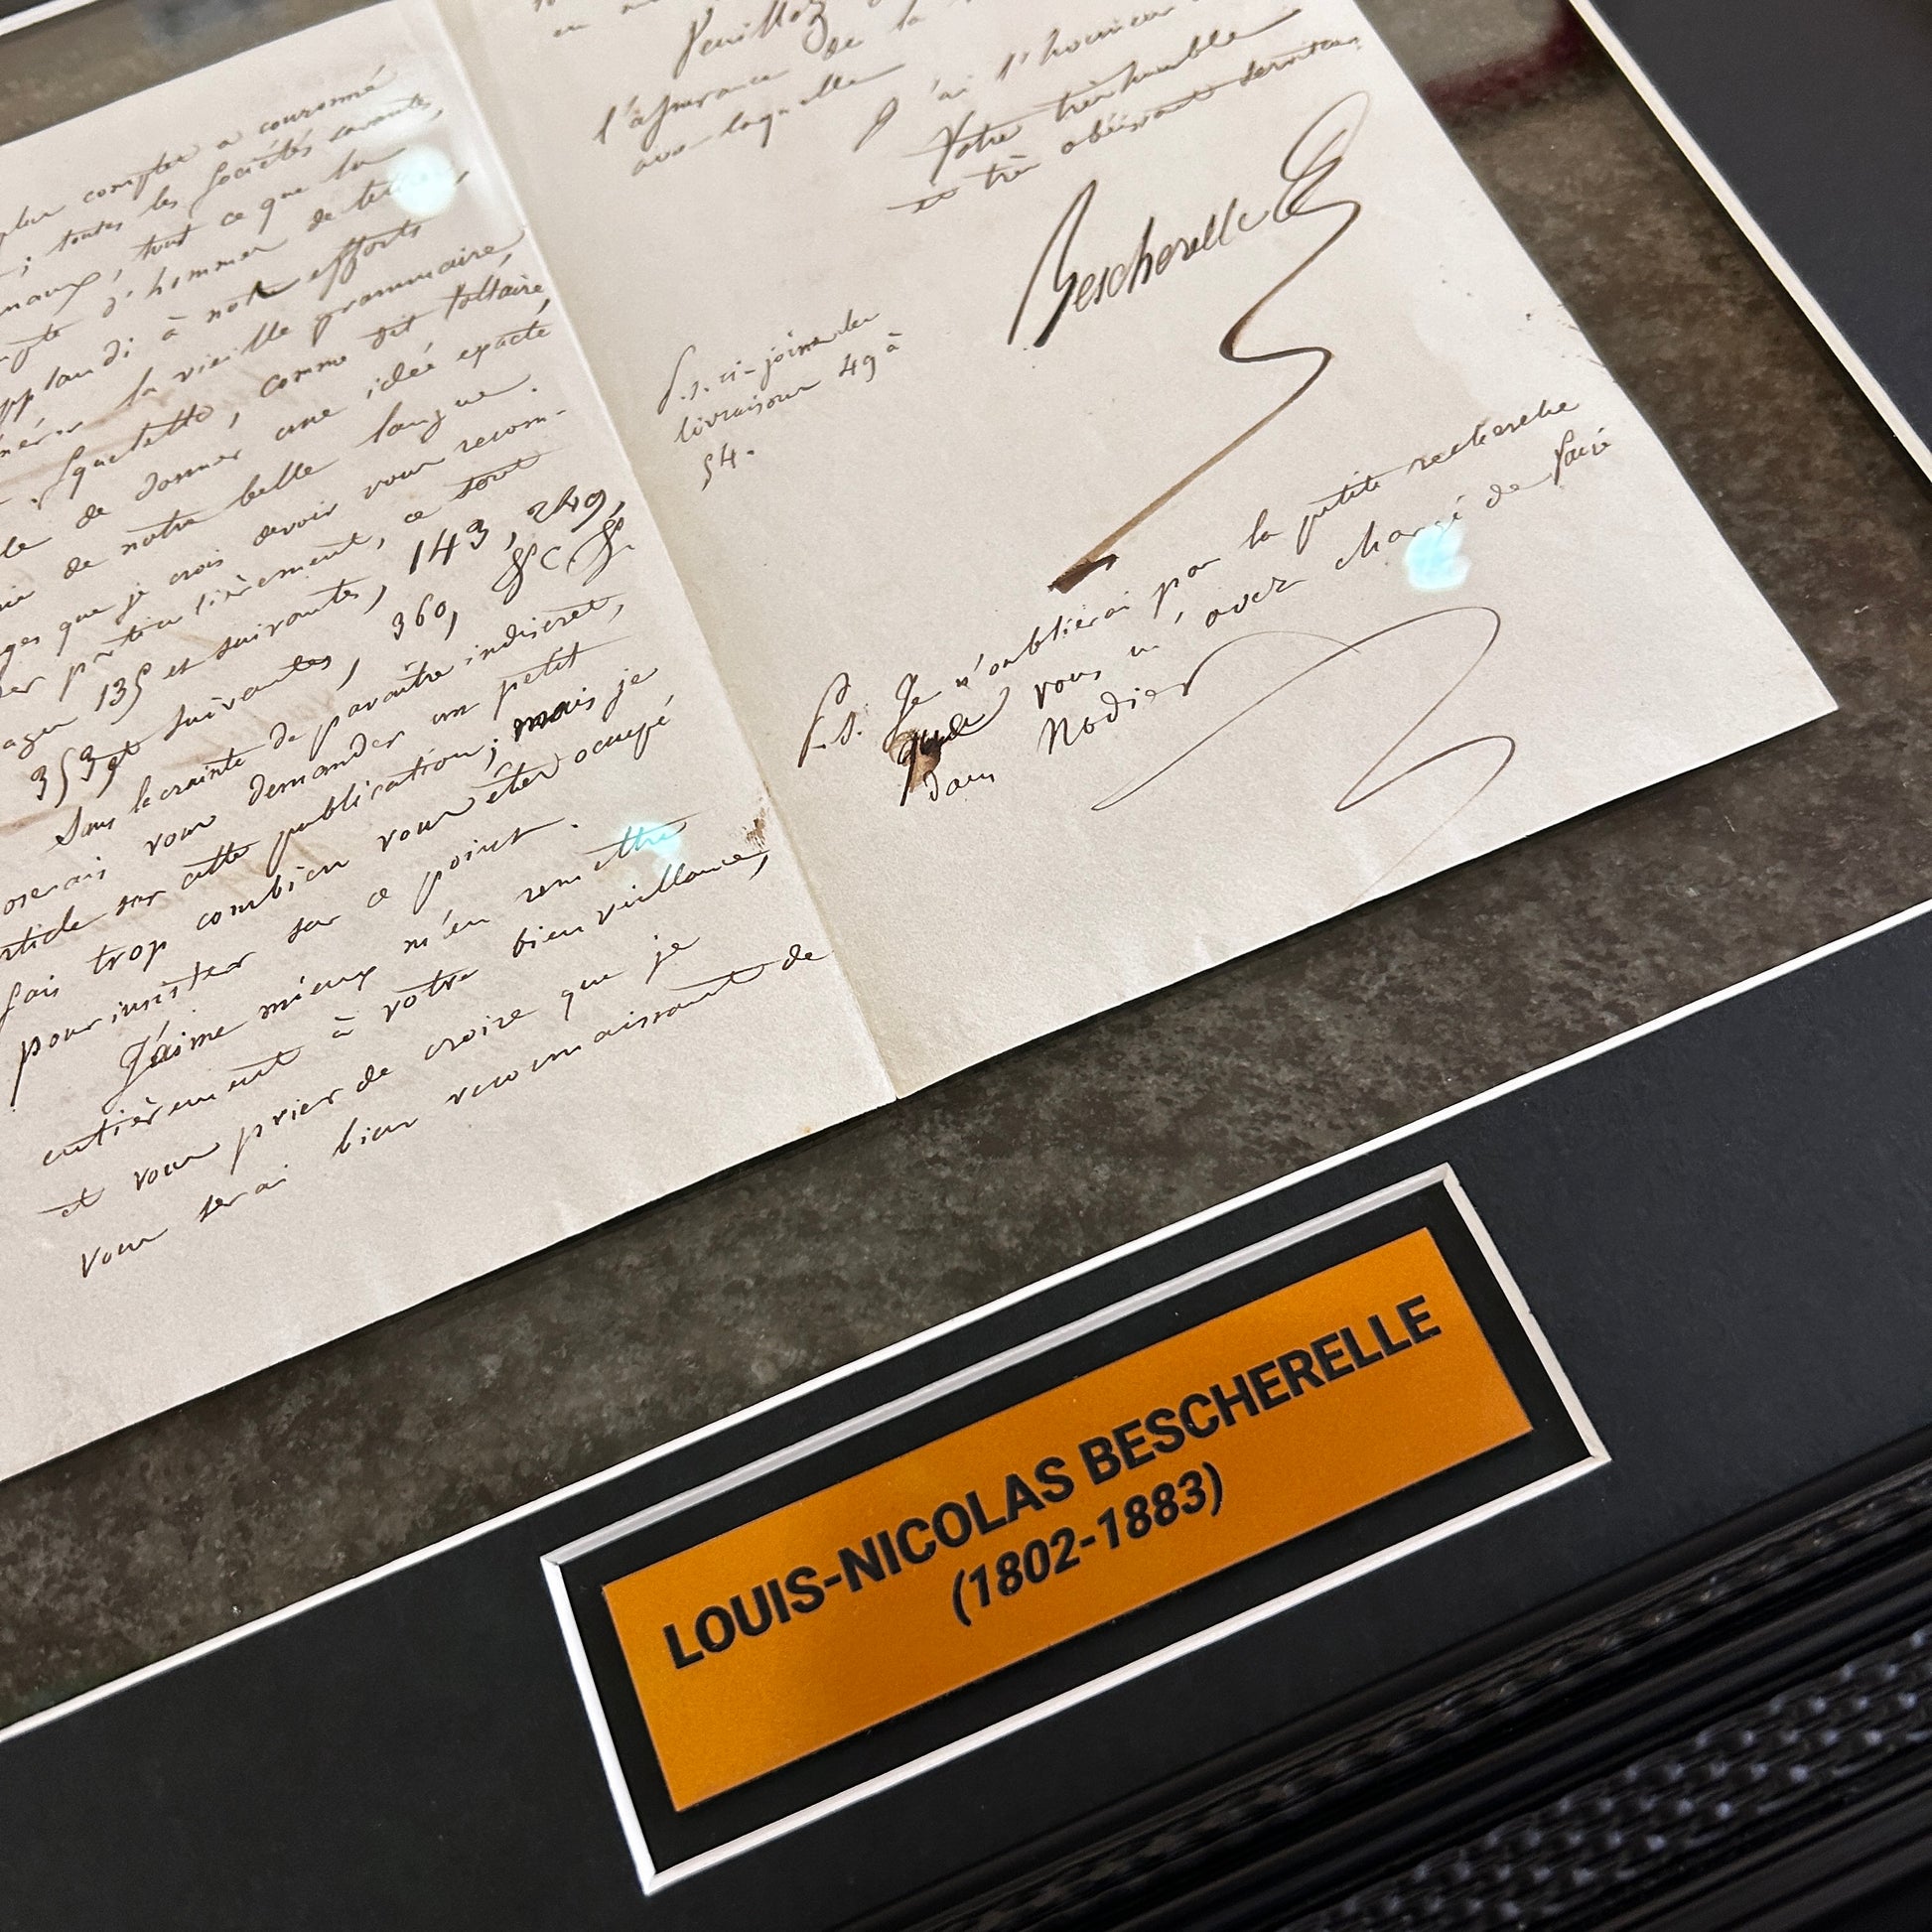 plus complet a couronné
; toutes les Sociétés savantes,
, tout ce que la
d'hommes de lettres,
applaudi à nos efforts
la vieille grammaire,
squelette, comme dit Voltaire,
de donner une idée exacte
de notre belle langue.
que je crois devoir vous recom-
particulièrement, ce sont
135 et suivantes, 143, 249,
353 et suivantes, 360, &c &c.
Sans la crainte de paraître indiscret,
oserais vous demander un petit
article sur cette publication; mais je
sais trop combien vous êtes occupé
pour insister sur ce point.
J'aime mieux m'en remettre
entièrement à votre bienveillance,
et vous prier de croire que je
vous serai bien reconnaissant de
Veuillez
l'assurance de la
avec laquelle
J'ai l'honneur
Votre très humble
et très obéissant serviteur.
Bescherelle
P.S. ci-joint les
livraisons 49 à
54.
P.S. Je n'oublierai pas la petite recherche
que vous m'avez chargé de faire
dans Nodier
LOUIS-NICOLAS BESCHERELLE
(1802-1883)